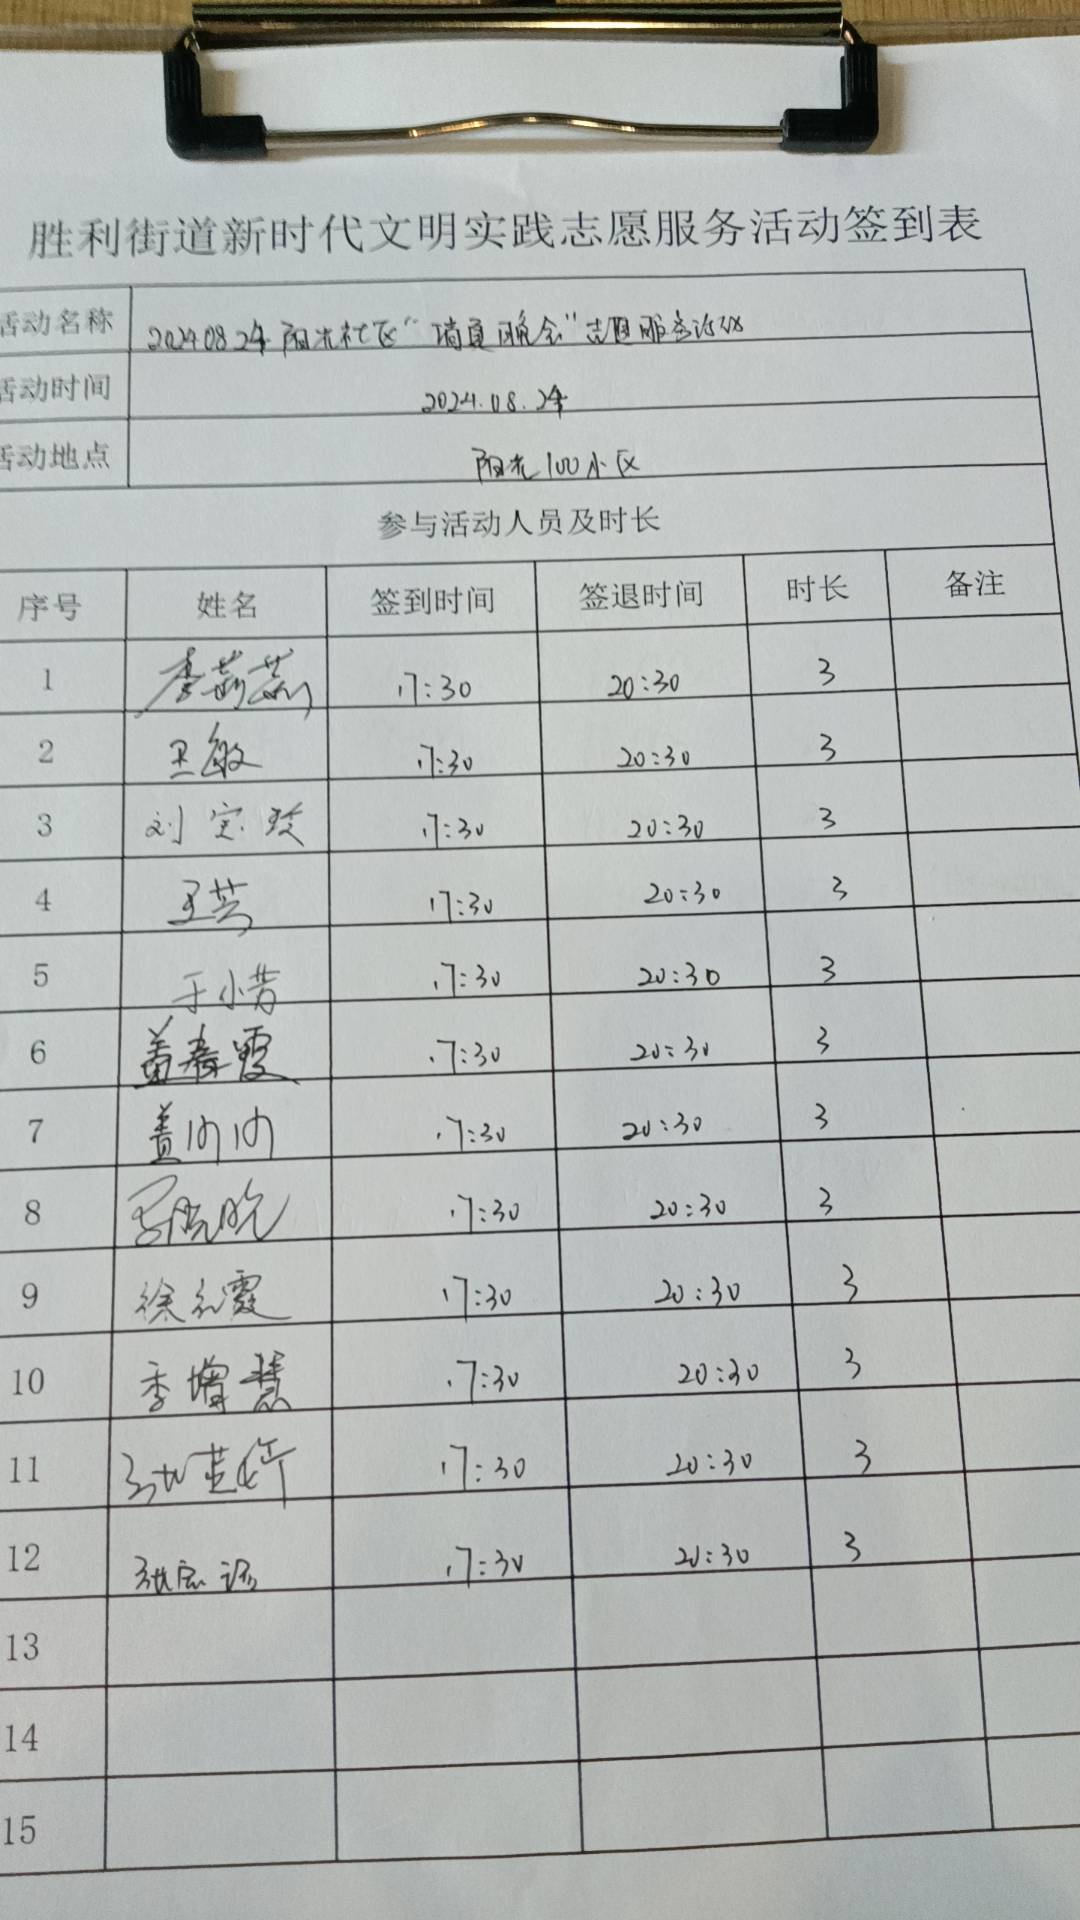 胜利街道新时代文明实践志愿服务活动签到表
活动名称 2024.08.24 阳光社区“消夏晚会”志愿服务活动
活动时间 2024.08.24
活动地点 阳光100小区
参与活动人员及时长
序号 姓名 签到时间 签退时间 时长 备注
1 李莉莉 17:30 20:30 3
2 王敏 17:30 20:30 3
3 刘宝玫 17:30 20:30 3
4 王芸 17:30 20:30 3
5 于小芳 17:30 20:30 3
6 盖春霞 17:30 20:30 3
7 盖 17:30 20:30 3
8 17:30 20:30 3
9 徐红霞 17:30 20:30 3
10 李增慧 17:30 20:30 3
11 张 17:30 20:30 3
12 张 17:30 20:30 3
13
14
15